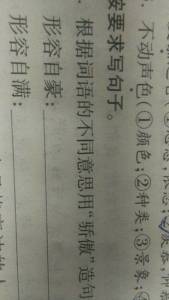 不动声色(①颜色;②种类;③景象;
按要求写句子。
根据词语的不同意思用“骄傲”造句
形容自豪:
形容自满: